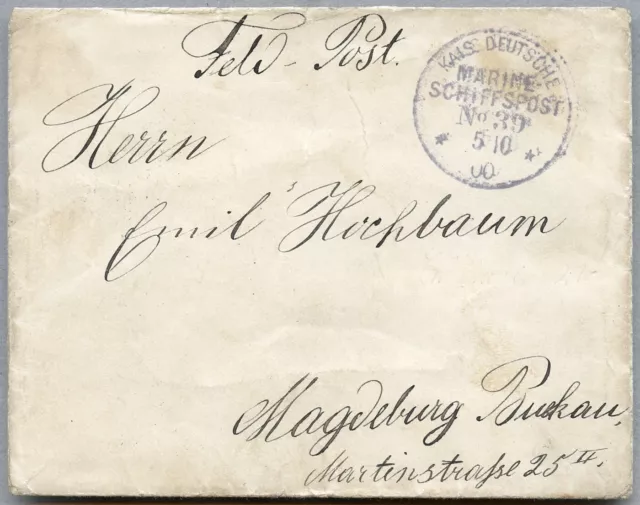 Feld-Post.
KAIS. DEUTSCHE
MARINE-
SCHIFFSPOST
No 39
5 10
00
Herrn
Emil Hochbaum
Magdeburg Buckau,
Martinstraße 25 II.